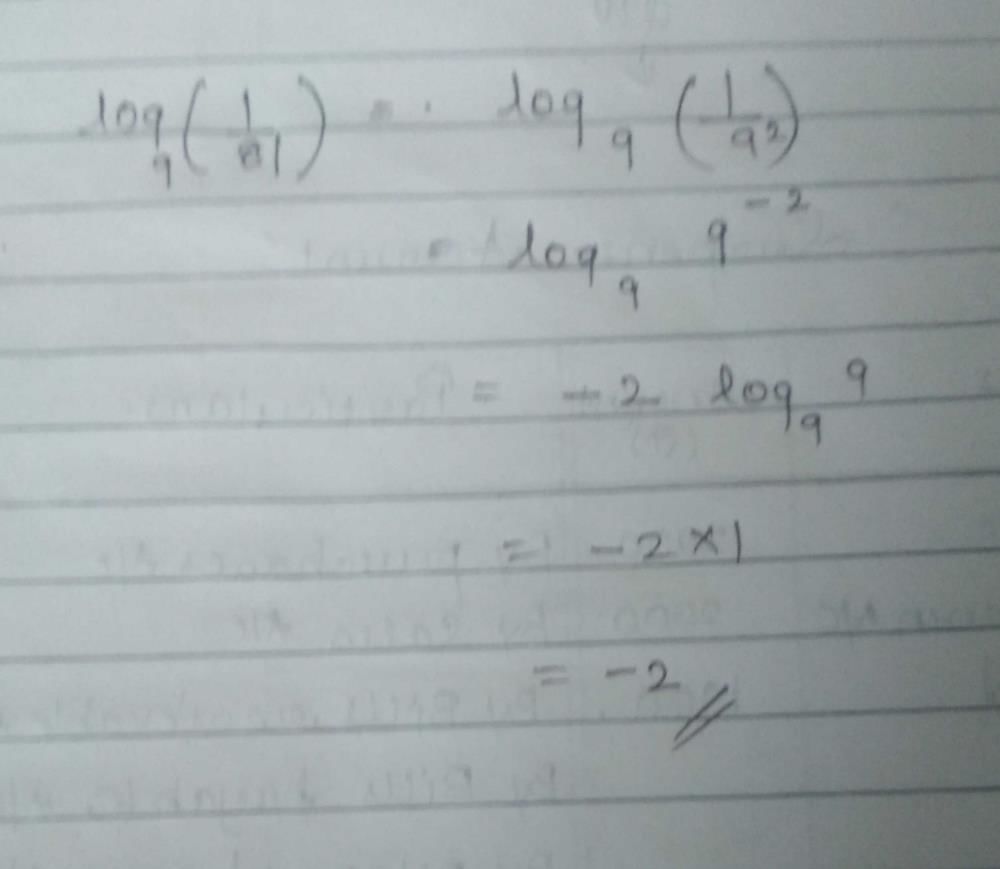 log₉(1/81) = log₉(1/9²)
= log₉ 9⁻²
= -2 log₉ 9
= -2 × 1
= -2 //